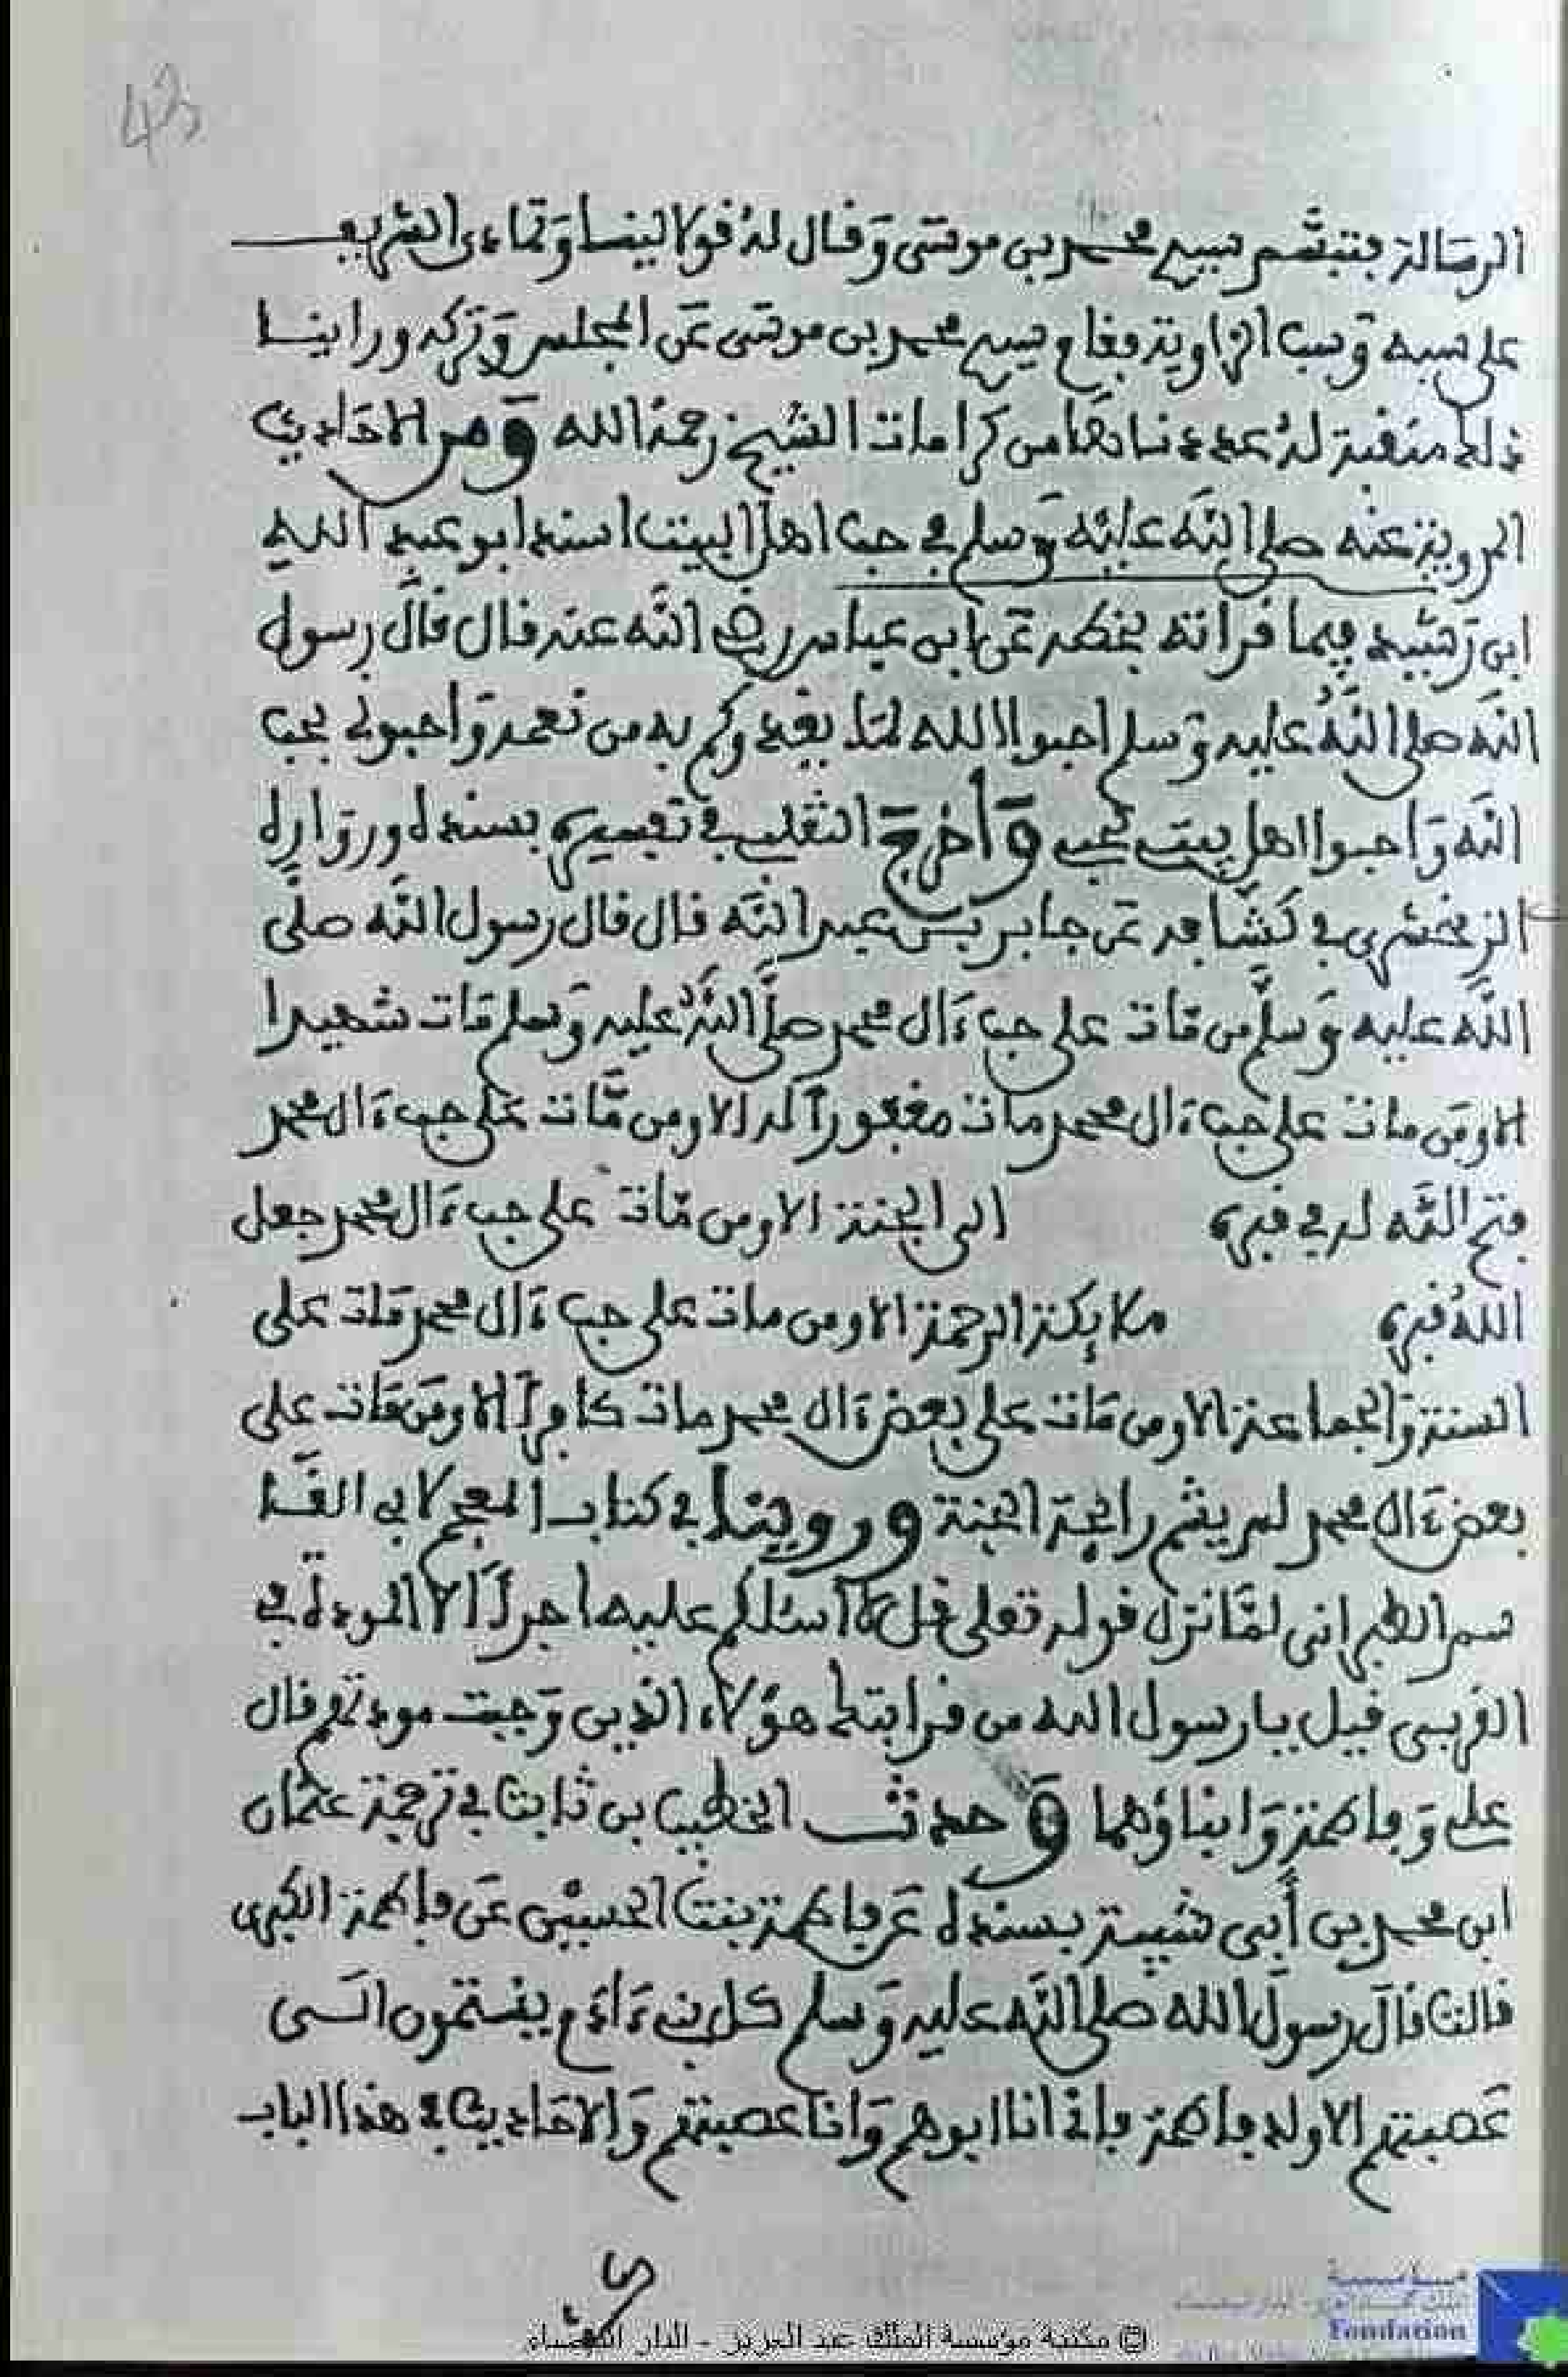 43
الرسالة فتبسم سيدي محمد بن موسى وقال له قولا لينا وتمادى الشريف
على سبه وسب الزاوية فقام سيدي محمد بن موسى عن المجلس وتركه ورأينا
ذلك منقبة له عددناها من كرامات الشيخ رحمه الله ومن الاحاديث
المروية عنه صلى الله عليه وسلم في حب اهل البيت اسند ابو عبد الله
ابن رشيد فيما قرأته بخطه عن ابن عباس رضي الله عنه قال قال رسول
الله صلى الله عليه وسلم احبوا الله لما يغدوكم به من نعمه واحبوني بحب
الله واحبوا اهل بيتي بحبي وأخرج الثعلبي في تفسيره بسنده ورواه
الزمخشري في كشافه عن جابر بن عبد الله قال قال رسول الله صلى
الله عليه وسلم من مات على حب ءال محمد صلى الله عليه وسلم مات شهيدا
الا ومن مات على حب ءال محمد مات مغفورا له الا ومن مات على حب ءال محمد
فتح الله له في قبره الى الجنة الا ومن مات على حب ءال محمد جعل
الله قبره ملايكة الرحمة الا ومن مات على حب ءال محمد مات على
السنة والجماعة الا ومن مات على بغض ءال محمد مات كافرا الا ومن مات على
بغض ءال محمد لم يشم رائحة الجنة وروينا في كتاب المعجم لابي القا
سم الطبراني لما نزل قوله تعلى قل لا أسئلكم عليه اجرا الا المودة في
القربى قيل يا رسول الله من قرابتك هؤلاء الذين وجبت مودتهم قال
علي وفاطمة وابناؤهما وحدث الخطيب بن ثابت في ترجمة عثمان
ابن محمد بن أبي شيبة بسنده عن فاطمة بنت الحسين عن فاطمة الكبرى
قالت قال رسول الله صلى الله عليه وسلم كل بني ءادم ينتمون الى
عصبتهم الا ولد فاطمة فاني انا ابوهم وانا عصبتهم والاحاديث في هذا الباب
© مكتبة مؤسسة الملك عبد العزيز - الدار البيضاء
Fondation